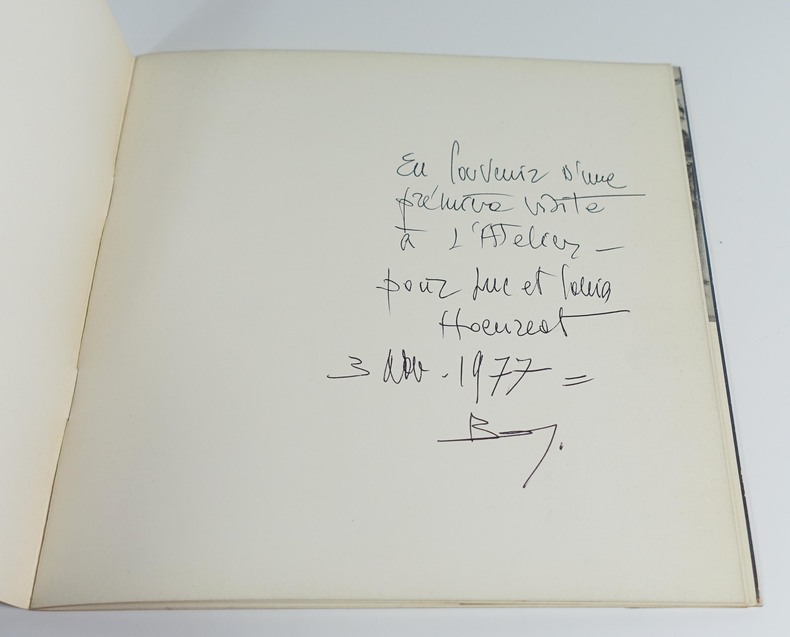 En Souvenir d'une
première visite
à l'Atelier —
pour Luc et Sonia
3 Nov. 1977 =